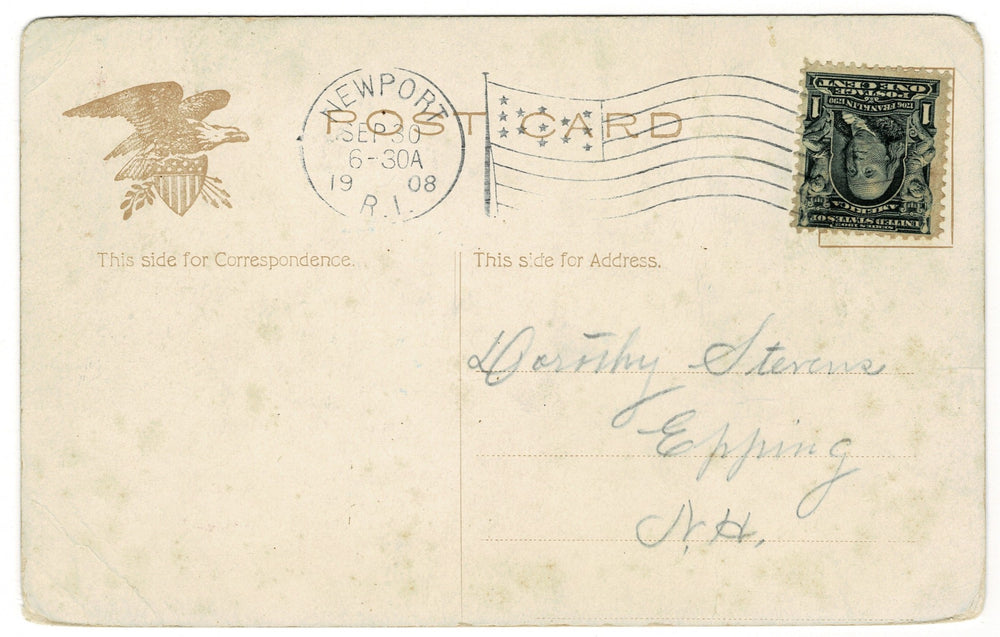 POST CARD
NEWPORT
SEP 30
6-30A
19 08
R.I.
POSTAGE
ONE CENT
1706 FRANKLIN 1790
1 1
UNITED STATES OF
AMERICA
SERIES 1902
This side for Correspondence.
This side for Address.
Dorothy Stevens
Epping
N.H.